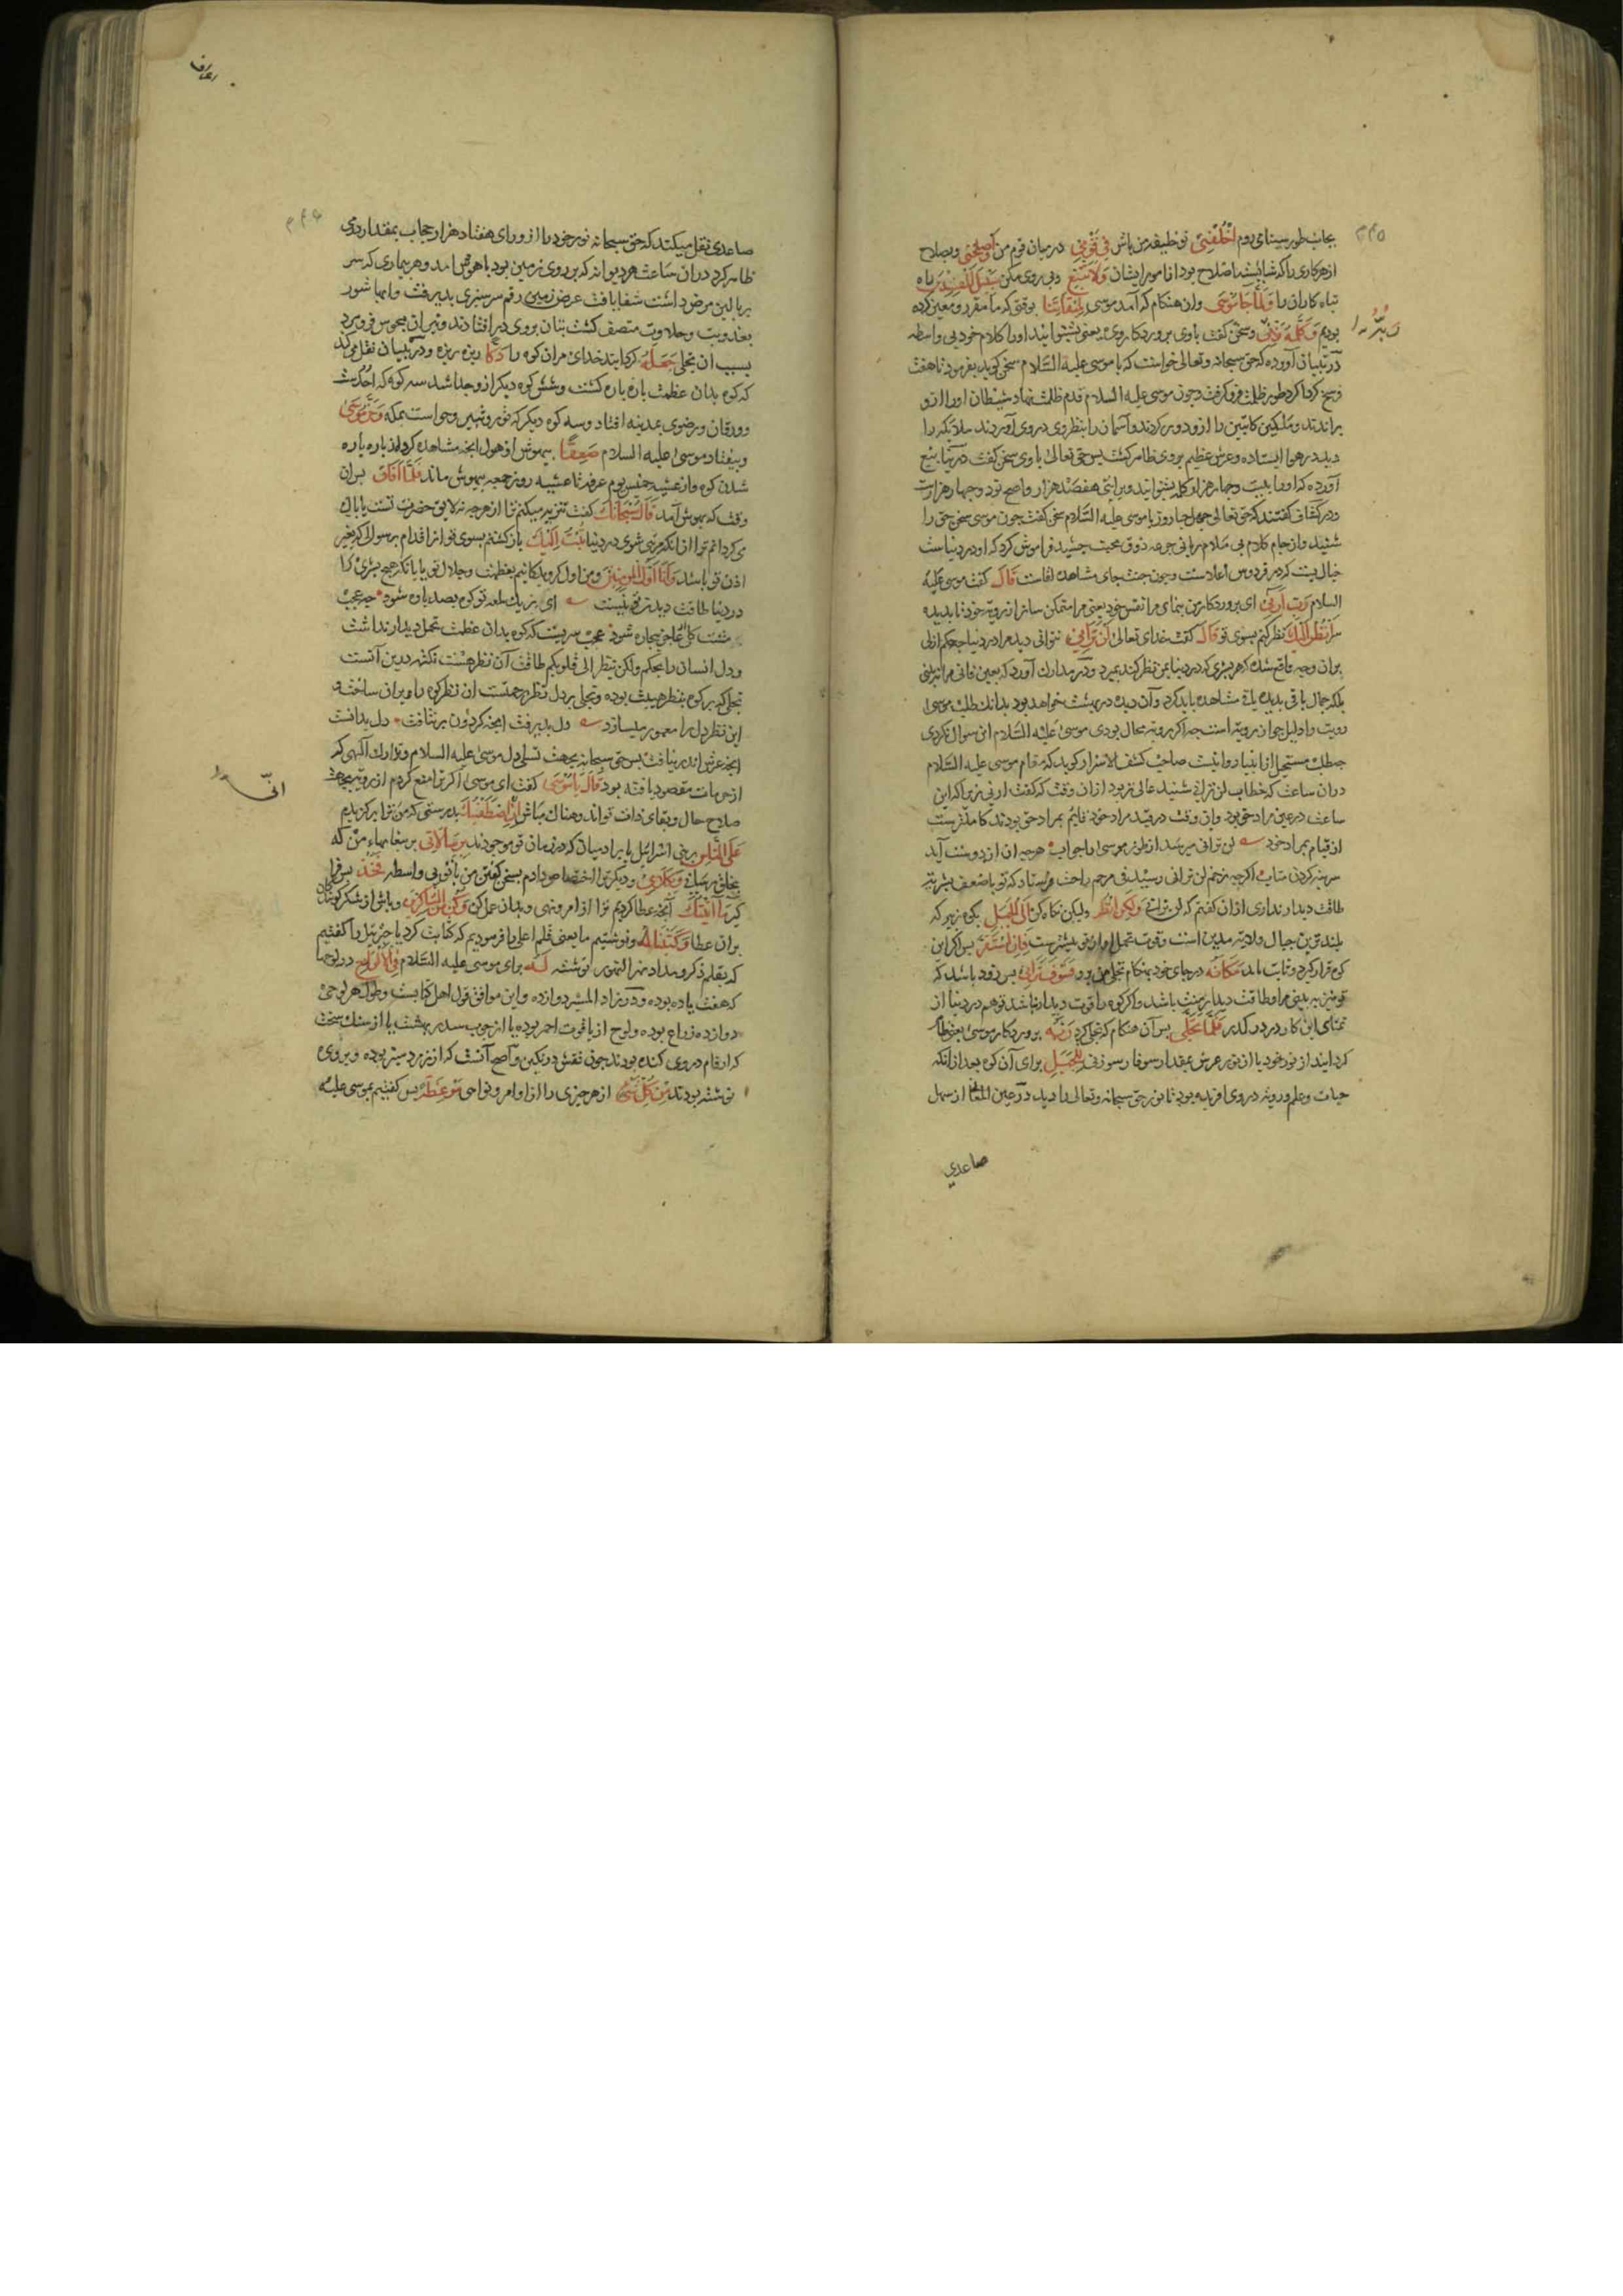 ۴۴۵
بجانب طور سینا می روم اخْلُفْنِی تو خلیفه من باش فِی قَوْمِی در میان قوم من وَاَصْلِحْ و بصلاح
از هرکاری را که شایسته اصلاح بود از امور ایشان وَلَا تَتَّبِعْ و پی روی مکن سَبِیلَ الْمُفْسِدِینَ راه
تباه کاران را وَلَمَّا جَاءَ مُوسَی و ان هنکام که آمد موسی لِمِیقَاتِنَا بوقتی که ما مقرر و معین کرده
بودیم وَکَلَّمَهُ رَبُّهُ و سخن کفت با وی پروردکار وی یعنی بشنوانید او را کلام خود بی واسطه
در تبیان آورده که حق سبحانه و تعالی خواست که با موسی علیه السلام سخن کوید بفرمود تا هفت
فرسخ کرداکرد طور ظلمت فرو کرفت و چون موسی علیه السلام قدم ظلمت نهاد شیطان او را ازو
براندند و ملکین کاتبین را ازو دور کردند و آسمان را بنظر وی در وی آوردند ملایکه را
دید در هوا ایستاده و عرش عظیم بر وی ظاهر کشت پس حق تعالی با وی سخن کفت در ینابیع
آورده که او را بیست و چهار هزار کلمه بشنوانید و بر ایتی هفصد هزار واضح بود و چهار هزارست
و در کشاف کفتند که حق تعالی چهل شباروز با موسی علیه السلام سخن کفت چون موسی سخن حق را
شنید و از جام کلام بی ملام ربانی جرعه ذوق محبت چشید فراموش کرد که او در دنیاست
خیال بست که در فردوس اعلاست و چون جنت جای مشاهده لقاست قَالَ کفت موسی علیه
السلام رَبِّ اَرِنِی ای پروردکار من بنمای مرا نفس خود یعنی مرا متمکن ساز از رویه خود تا بدیده
سر اَنْظُرْ اِلَیْکَ نظر کنم بسوی تو قَالَ کفت خدای تعالی لَنْ تَرَانِی نتوانی دید مرا در دنیا چه حکم ازلی
بران وجه واقع شده که هر بشری که در دنیا بمن نظر کند بمیرد و در مدارک آورد که بعین فانی مرا نبینی
بلکه جمال باقی بدیده باقی مشاهده باید کرد و آن دیده در بهشت خواهد بود بدانک طلب موسی
رویت را دلیل جواز رویه است چه اکر رویه محال بودی موسی علیه السلام این سوال نکردی
چه طلب مستحیل از انبیا روا نیست صاحب کشف الاسرار کوید که مقام موسی علیه السلام
دران ساعت که خطاب لن ترانی شنید عالی تر بود ازان وقت که کفت ارنی زیرا که این
ساعت در عین مراد حق بود و ان وقت در قید مراد خود قایم بمراد حق بودند کاملترست
از قیام بمراد خود لن ترانی میرسد از طور موسی را جواب هرچه ان از دوست آید
سر بنه کردن متاب اکرچه زخم لن ترانی رسید فی مرهم راحت فرستاد که تو با ضعف بشریه
طاقت دیدار نداری ازان کفتم که لن ترانی وَلَکِنِ انْظُرْ ولیکن نکاه کن اِلَی الْجَبَلِ بکوه زبیر که
بلندترین جبال ولایه مدین است و قوت تحمل او از تو بیشترست فَاِنِ اسْتَقَرَّ پس اکر این
کوه قرار کیرد و ثابت ماند مَکَانَهُ در جای خود بهنکام تجلی من برو فَسَوْفَ تَرَانِی پس زود باشد که
تو نیز ببینی مرا و طاقت دیدار منت باشد و اکر کوه را قوت دیدار نباشد تو هم در دنیا از
تمنای این کار در در کذر فَلَمَّا تَجَلَّی پس آن هنکام که تجلی کرد رَبُّهُ پروردکار موسی یعنی ظاهر
کردانید از نور خود یا از نور عرش بمقدار سوفار سوزنی لِلْجَبَلِ برای آن کوه بعد از آنکه
حیات و علم و رویه در وی افریده بود تا نور حق سبحانه و تعالی را دید در عین المعانی از سهل
صاعدی
اعراف
۴۴۶
صاعدی نقل میکند که حق سبحانه نور خود را از ورای هفتاد هزار حجاب بمقدار درمی
ظاهر کرد دران ساعت هر دیوانه که بر روی زمین بود با هوش امد و هر بیماری که سر
ببالین مرض داشت شفا یافت عرض زمین رقم سرسبزی پدیرفت و ابها شور
بعذوبت و حلاوت متصف کشت بتان بروی در افتادند و نیران مجوس فرو مرد
بسبب ان تجلی جَعَلَهُ کردانید خدای مران کوه را دَکًّا ریزه ریزه و در تبیان نقل می کند
که کوه بدان عظمت پاره پاره کشت و شش کوه دیکر ازو جدا شد سه کوه که احدست
و ورقان و رضوی بمدینه افتاد و سه کوه دیکر که ثور و ثبیر و حراست بمکه وَخَرَّ مُوسَی
و بیفتاد موسی علیه السلام صَعِقًا بیهوش از هول انچه مشاهده کرد از پاره پاره
شدن کوه و از عشیه خمیس یوم عرفه تا عشیه روز جمعه بیهوش ماند فَلَمَّا اَفَاقَ پس ان
وقت که بهوش آمد قَالَ سُبْحَانَکَ کفت تنزیه میکنم ترا از هرچه نه لایق حضرت تست یا پاک
می کردانم ترا از انکه مرئی شوی در دنیا تُبْتُ اِلَیْکَ باز کشتم بسوی تو از اقدام بر سوال که بغیر
اذن تو باشد وَاَنَا اَوَّلُ الْمُؤْمِنِینَ و من اول کرویدکانیم بعظمت و جلال تو یا بانکه هیچ بشری را
در دنیا طاقت دیدن تو نیست ای ز یک لمعه تو کوه بصد پاره شود چه عجب
مشت کل عاجز بیچاره شود عجب سریست که کوه بدان عظمت تحمل دیدار نداشت
و دل انسان را بحکم ولکن ینظر الی قلوبکم طاقت آن نظر هست نکته درین آنست
تجلی که بر کوه بنظر هیبت بوده و تجلی بر دل نظر رحمتست ان نظر کوه را ویران ساخته و
این نظر دل را معمور میسازد دل پدیرفت انچه کردون بر نتافت دل بدانست
انچه عرش اندر نیافت پس حق سبحانه بجهت تسلی دل موسی علیه السلام و تدارک آنچه که
از حرمات مقصود یافته بود قَالَ یَا مُوسَی کفت ای موسی اکر ترا منع کردم از رویه بجهت
صلاح حال و بقای ذات تو اندوهناک مباش اِنِّی اصْطَفَیْتُکَ بدرستی که من ترا برکزیدم
عَلَی النَّاسِ بر بنی اسرائیل یا بر ادمیان که در زمان تو موجودند بِرِسَالَاتِی بر پیغامهاء من که
بخلق رسانی وَبِکَلَامِی و دیکر ترا اختصاص دادم بسخن کفتن من با تو بی واسطه فَخُذْ پس فرا
کیر مَا آتَیْتُکَ آنچه عطا کردیم ترا از امر و نهی و بدان عمل کن وَکُنْ مِنَ الشَّاکِرِینَ و باش از شکر کویندکان
بران عطا وَکَتَبْنَا لَهُ و نوشتیم ما یعنی قلم اعلی را فرمودیم که کتابت کرد یا جبرئیل را کفتیم
که بقلم ذکر و مداد نهر النور نوشته لَهُ برای موسی علیه السلام فِی الْاَلْوَاحِ در لوحها
که هفت یا ده بوده و در زاد المسیر دوازده و این موافق قول اهل کتابست و طول هر لوحی
دوازده ذراع بوده و لوح از یاقوت احمر بوده یا از چوب سدر بهشت یا از سنک سخت
که ارقام در وی کنده بودند چون نقش در نکین و اصح آنست که از زبرد سبز بوده و بر وی
نوشته بودند مِنْ کُلِّ شَیْءٍ از هر چیزی را از اوامر و نواحی مَوْعِظَةً پس کفتیم بموسی علیه
انّی